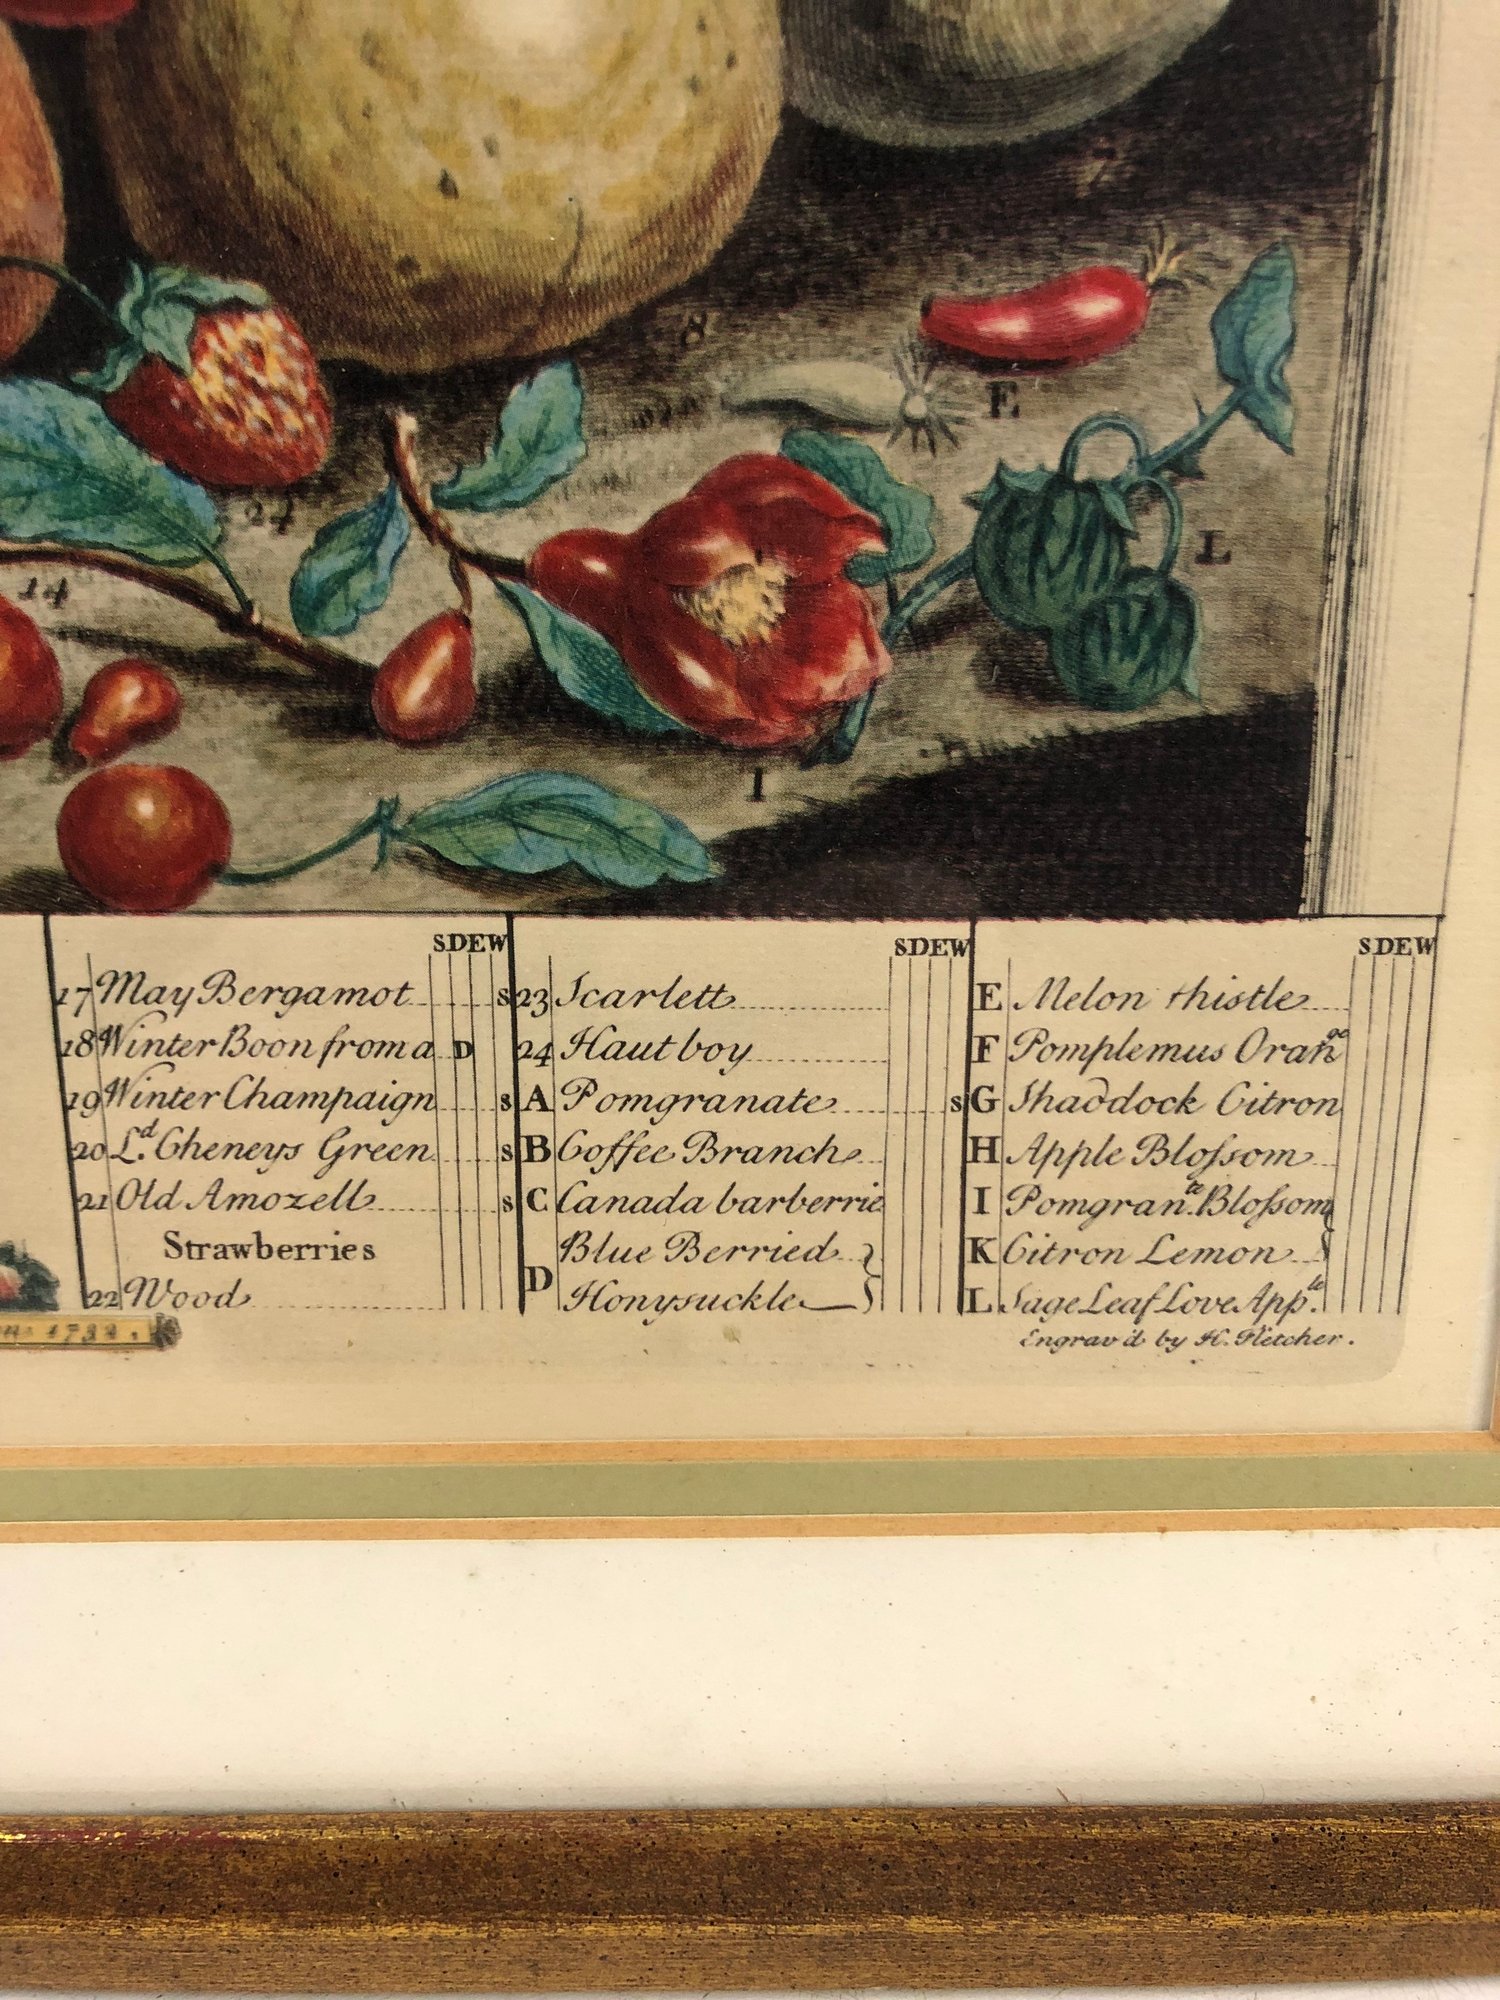 7
8
E
24
L
14
I
SDEW
17 May Bergamot s
18 Winter Boon from a D
19 Winter Champaign s
20 Ld. Cheneys Green s
21 Old Amozell s
Strawberries
22 Wood
SDEW
23 Scarlett
24 Hautboy
A Pomgranate s
B Coffee Branch
C Canada barberrie
D Blue Berried
Honysuckle
SDEW
E Melon thistle
F Pomplemus Orange
G Shaddock Citron
H Apple Bloſsom
I Pomgran.te Bloſsom
K Citron Lemon
L Sage Leaf Love App.le
1732.
Engrav'd by H. Fletcher.